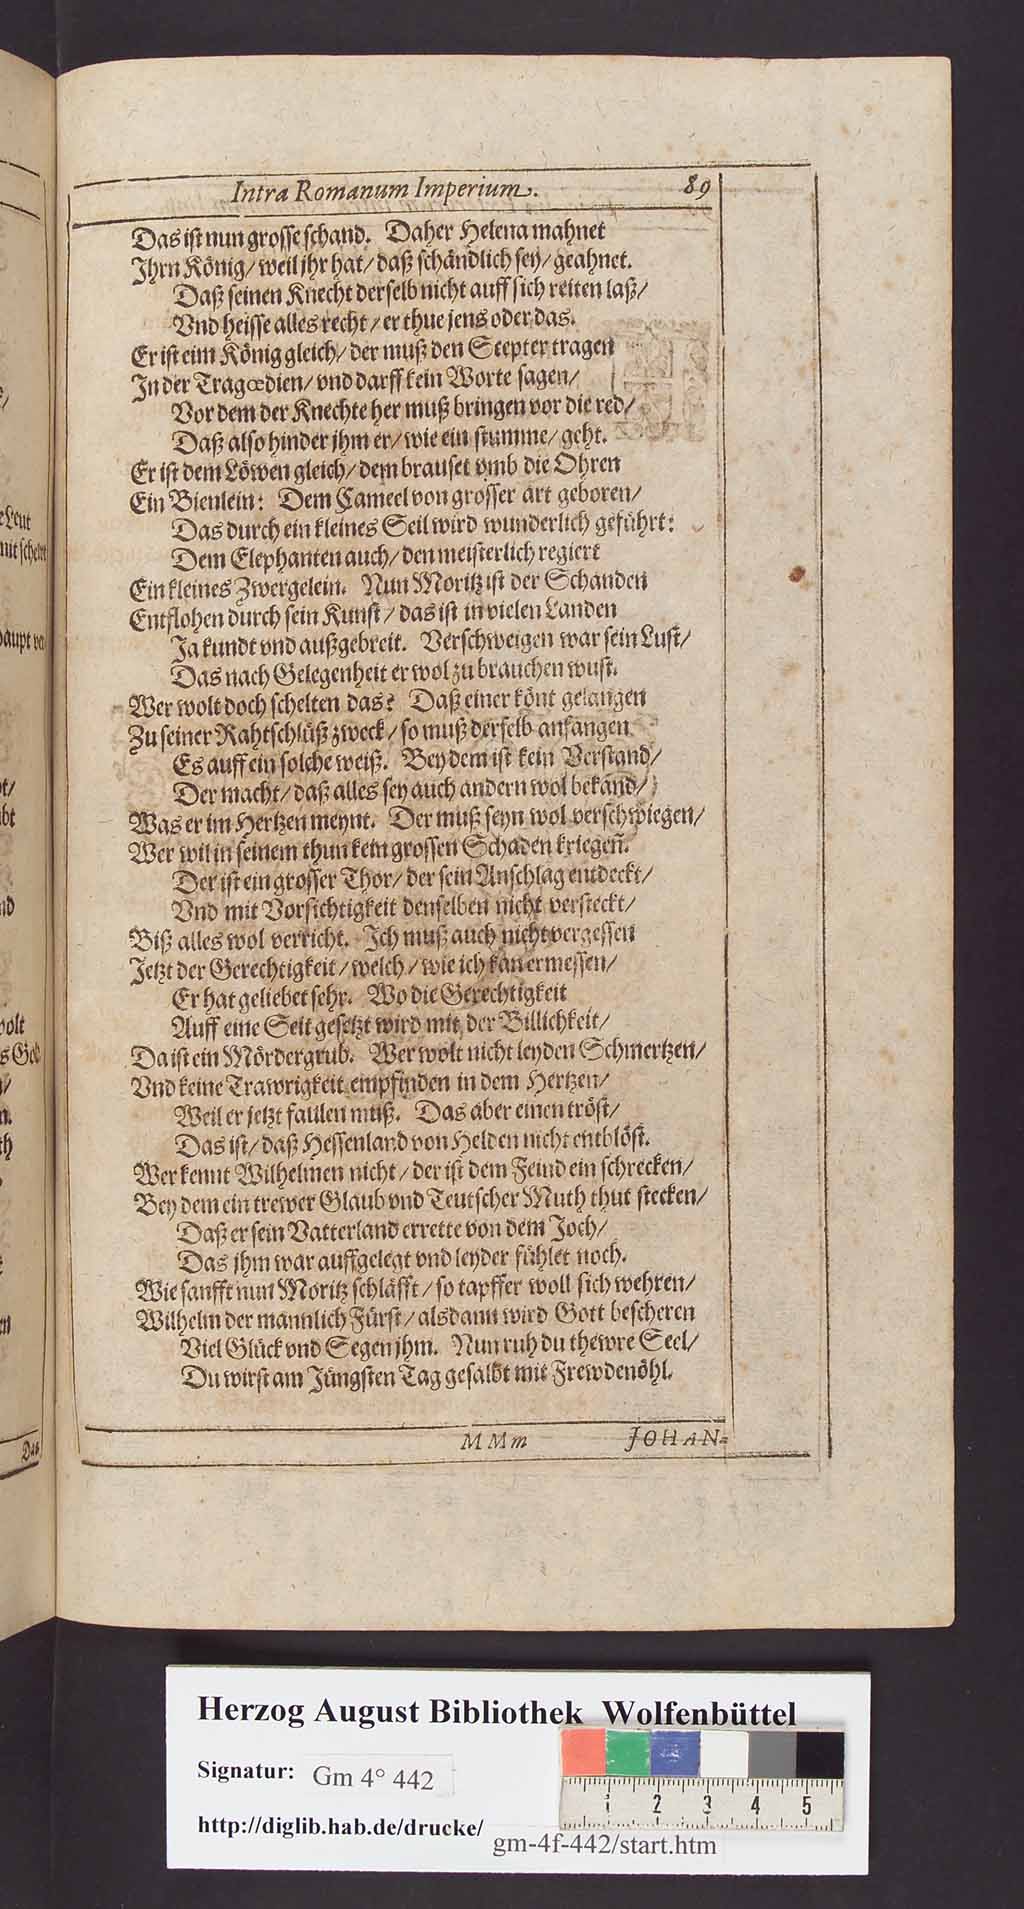 Intra Romanum Imperium. 89
Das ist nun grosse schand. Daher Helena mahnet
Ihrn König/ weil jhr hat/ daß schändlich sey/ geahnet.
Daß seinen Knecht derselb nicht auff sich reiten laß/
Vnd heisse alles recht/ er thue jens oder das.
Er ist eim König gleich/ der muß den Scepter tragen
In der Tragœdien/ vnd darff kein Worte sagen/
Vor dem der Knechte her muß bringen vor die red/
Daß also hinder jhm er/ wie ein stumme/ geht.
Er ist dem Löwen gleich/ dem brauset vmb die Ohren
Ein Bienlein: Dem Cameel von grosser art geboren/
Das durch ein kleines Seil wird wunderlich geführt:
Dem Elephanten auch/ den meisterlich regiert
Ein kleines Zwergelein. Nun Moritz ist der Schanden
Entflohen durch sein Kunst/ das ist in vielen Landen
Ja kundt vnd außgebreit. Verschweigen war sein Lust/
Das nach Gelegenheit er wol zu brauchen wust.
Wer wolt doch schelten das? Daß einer könt gelangen
Zu seiner Rahtschlüß zweck/ so muß derselb anfangen
Es auff ein solche weiß. Bey dem ist kein Verstand/
Der macht/ daß alles sey auch andern wol bekand/
Was er im Hertzen meynt. Der muß seyn wol verschwiegen/
Wer wil in seinem thun kein grossen Schaden kriegeñ.
Der ist ein grosser Thor/ der sein Anschlag entdeckt/
Vnd mit Vorsichtigkeit denselben nicht versteckt/
Biß alles wol verricht. Ich muß auch nicht vergessen
Jetzt der Gerechtigkeit/ welch/ wie ich kan ermessen/
Er hat geliebet sehr. Wo die Gerechtigkeit
Auff eine Seit gesetzt wird mit der Billichkeit/
Da ist ein Mördergrub. Wer wolt nicht leyden Schmertzen/
Vnd keine Trawrigkeit empfinden in dem Hertzen/
Weil er jetzt faulen muß. Das aber einen tröst/
Das ist/ daß Hessenland von Helden nicht entblöst.
Wer kennt Wilhelmen nicht/ der ist dem Feind ein schrecken/
Bey dem ein trewer Glaub vnd Teutscher Muth thut stecken/
Daß er sein Vatterland errette von dem Joch/
Das jhm war auffgelegt vnd leyder fühlet noch.
Wie sanfft nun Moritz schläfft/ so tapffer woll sich wehren/
Wilhelm der männlich Fürst/ alsdann wird Gott bescheren
Viel Glück vnd Segen jhm. Nun ruh du thewre Seel/
Du wirst am Jüngsten Tag gesalbt mit Frewdenöhl.
MMm JOHAN-
Herzog August Bibliothek Wolfenbüttel
Signatur: Gm 4° 442
http://diglib.hab.de/drucke/ gm-4f-442/start.htm
1 2 3 4 5